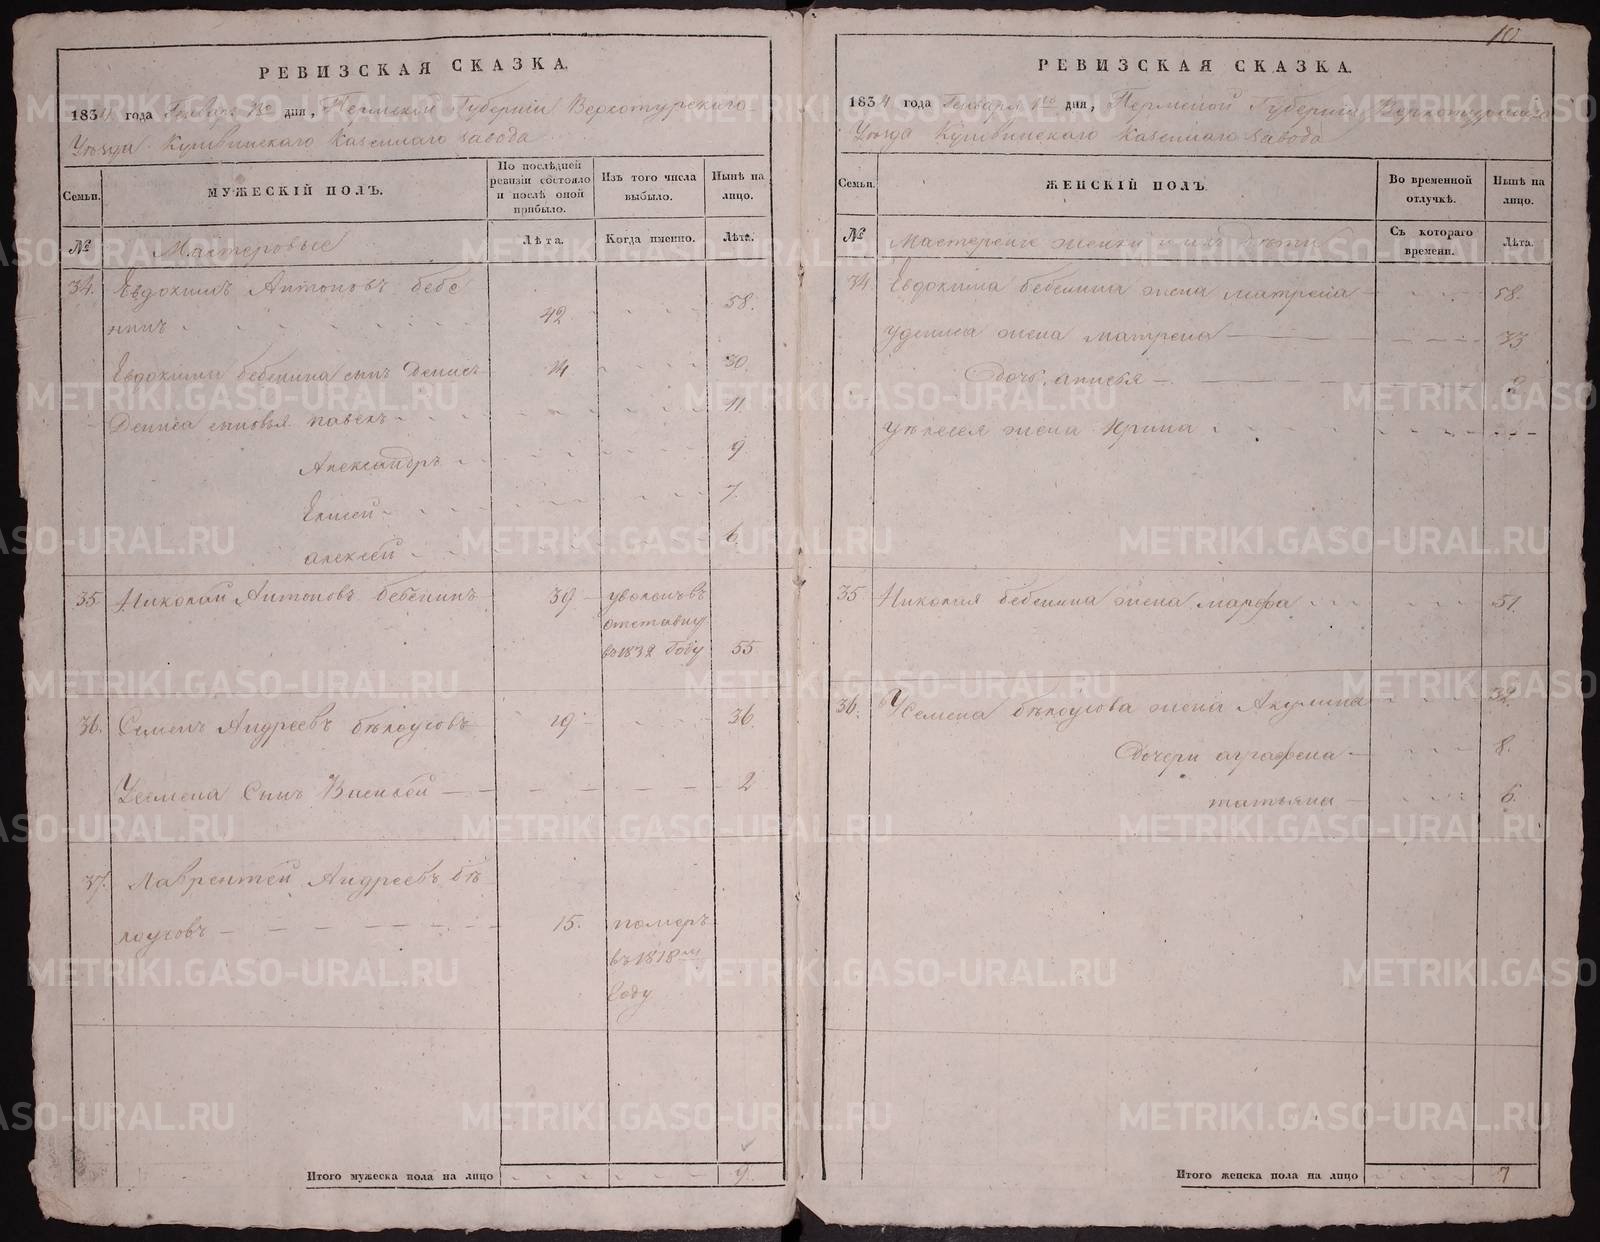 10
РЕВИЗСКАЯ СКАЗКА.
1834 года Генваря 1го дня, Пермской Губернiи Верхотурского
Уѣзда Кушвинскаго Казеннаго завода
Семьи.
МУЖЕСКIЙ ПОЛЪ.
По послѣдней ревизiи состояло и послѣ оной прибыло.
Изъ того числа выбыло.
Нынѣ на лицо.
№
Мастеровые
Лѣта.
Когда именно.
Лѣта.
34. Евдокимъ Антоновъ бебе
нинъ 42 58.
Евдокима бебенина сынъ Денисъ 14 30.
Дениса сыновья павелъ 11.
Александръ 9
Елисей 7.
алексей 6.
35 Николай Антоновъ бебенинъ 39 уволенъ въ
отставку
въ 1832 Году 55
36. Семенъ Андреевъ бѣлоусовъ 19 36.
Усемена Сынъ 2
37. Лаврентей Андреевъ бѣ
лоусовъ 15. померъ
въ 1818м
Году
Итого мужеска пола на лицо 9
РЕВИЗСКАЯ СКАЗКА.
1834 года Генваря 1го дня, Пермской Губернiи Верхотурскаго
Уѣзда Кушвинскаго Казеннаго завода
Семьи.
ЖЕНСКIЙ ПОЛЪ.
Во временной отлучкѣ.
Нынѣ на лицо.
№
Мастерские женки и ихъ дѣти
Съ котораго времени.
Лѣта.
34. Евдокима бебенина жена матрена 58.
уДениса жена матрена 33
Дочь анисья 2
жена Ирина
35. Николая бебенина жена марфа 51.
36. Усемена бѣлоусова жена Акулина 32.
Дочери аграфена 8.
татьяна 6.
Итого женска пола на лицо 7
METRIKI.GASO-URAL.RU